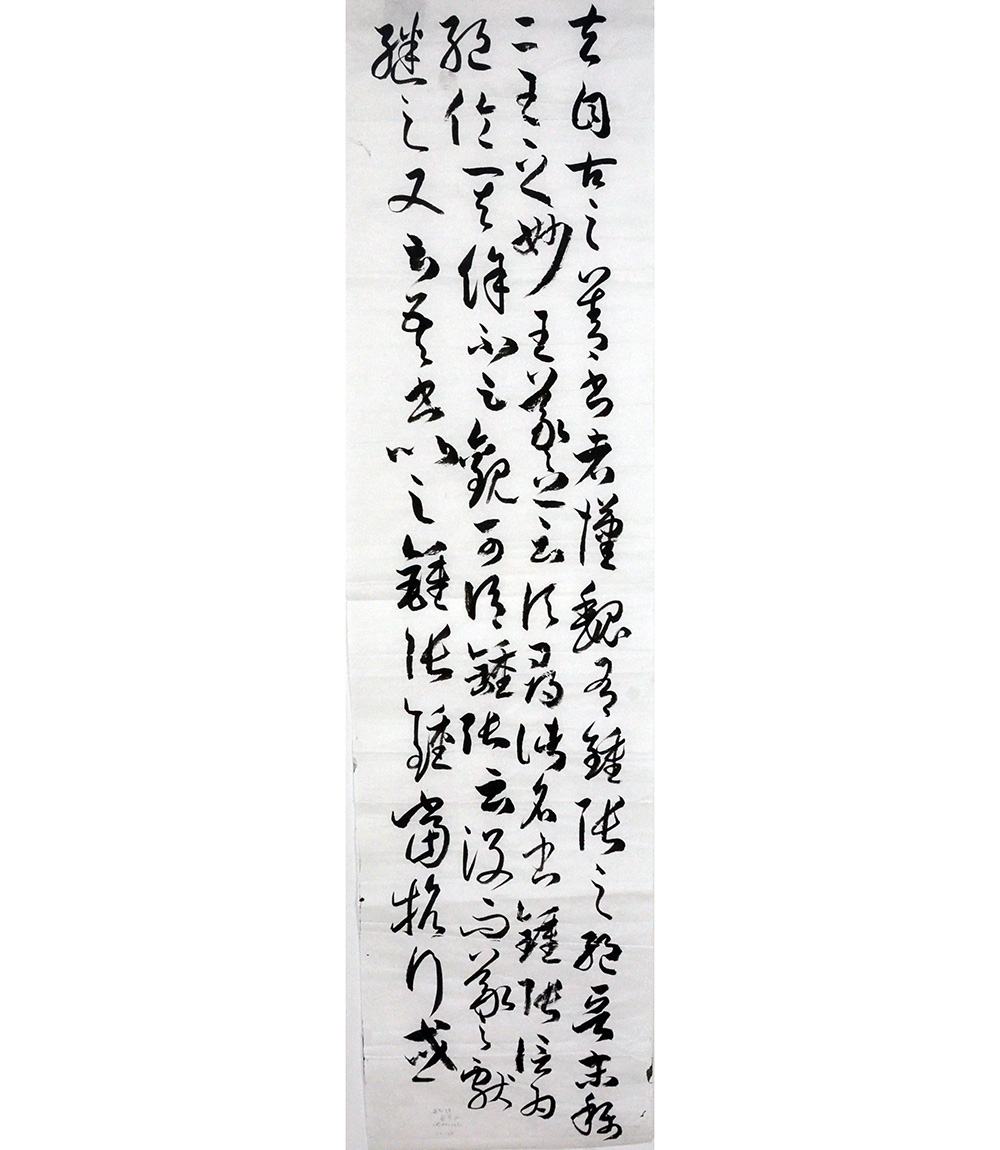 夫自古之善書者漢魏有鍾張之絕晉末稱
二王之妙王羲之云頃尋諸名書鍾張信為
絕倫其餘不足觀可謂鍾張云沒而羲獻
繼之又云吾書比之鍾張鍾當抗行或